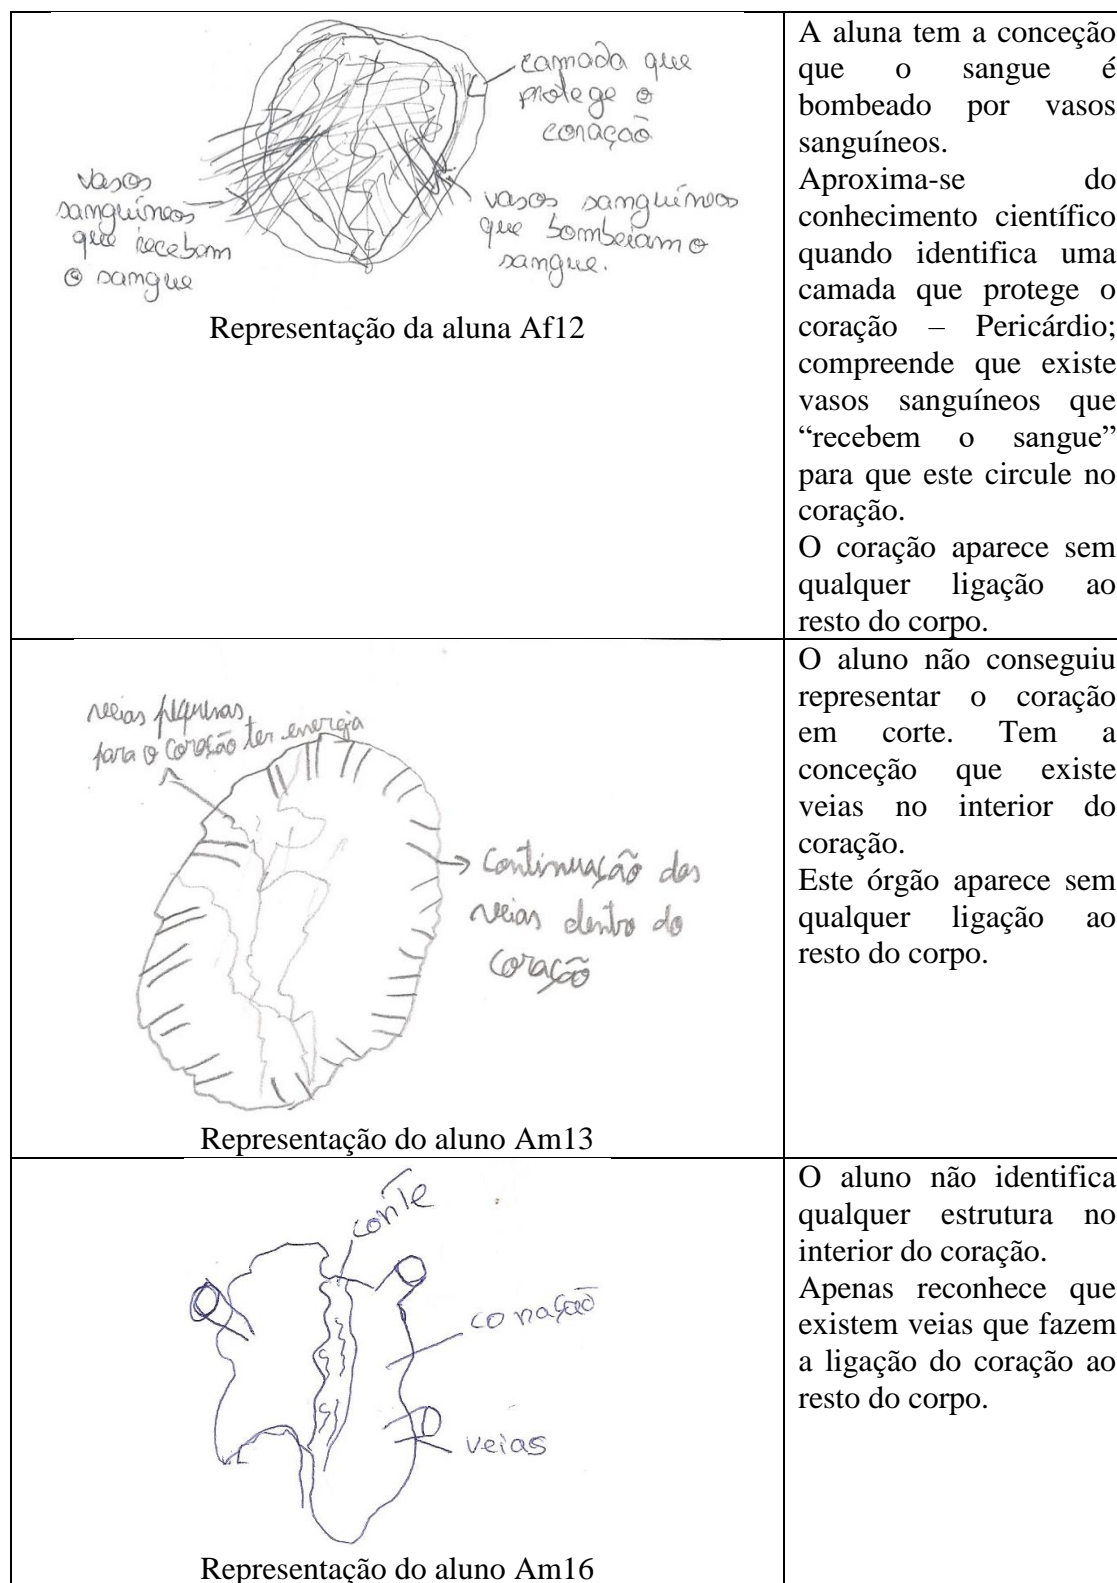 camada que
protege o
coração
vasos
sanguíneos
que recebem
o sangue
vasos sanguíneos
que bombeiam o
sangue.
Representação da aluna Af12
A aluna tem a conceção
que o sangue é
bombeado por vasos
sanguíneos.
Aproxima-se do
conhecimento científico
quando identifica uma
camada que protege o
coração – Pericárdio;
compreende que existe
vasos sanguíneos que
“recebem o sangue”
para que este circule no
coração.
O coração aparece sem
qualquer ligação ao
resto do corpo.
veias pequenas
para o coração ter energia
Continuação das
veias dentro do
coração
Representação do aluno Am13
O aluno não conseguiu
representar o coração
em corte. Tem a
conceção que existe
veias no interior do
coração.
Este órgão aparece sem
qualquer ligação ao
resto do corpo.
corte
coração
veias
Representação do aluno Am16
O aluno não identifica
qualquer estrutura no
interior do coração.
Apenas reconhece que
existem veias que fazem
a ligação do coração ao
resto do corpo.